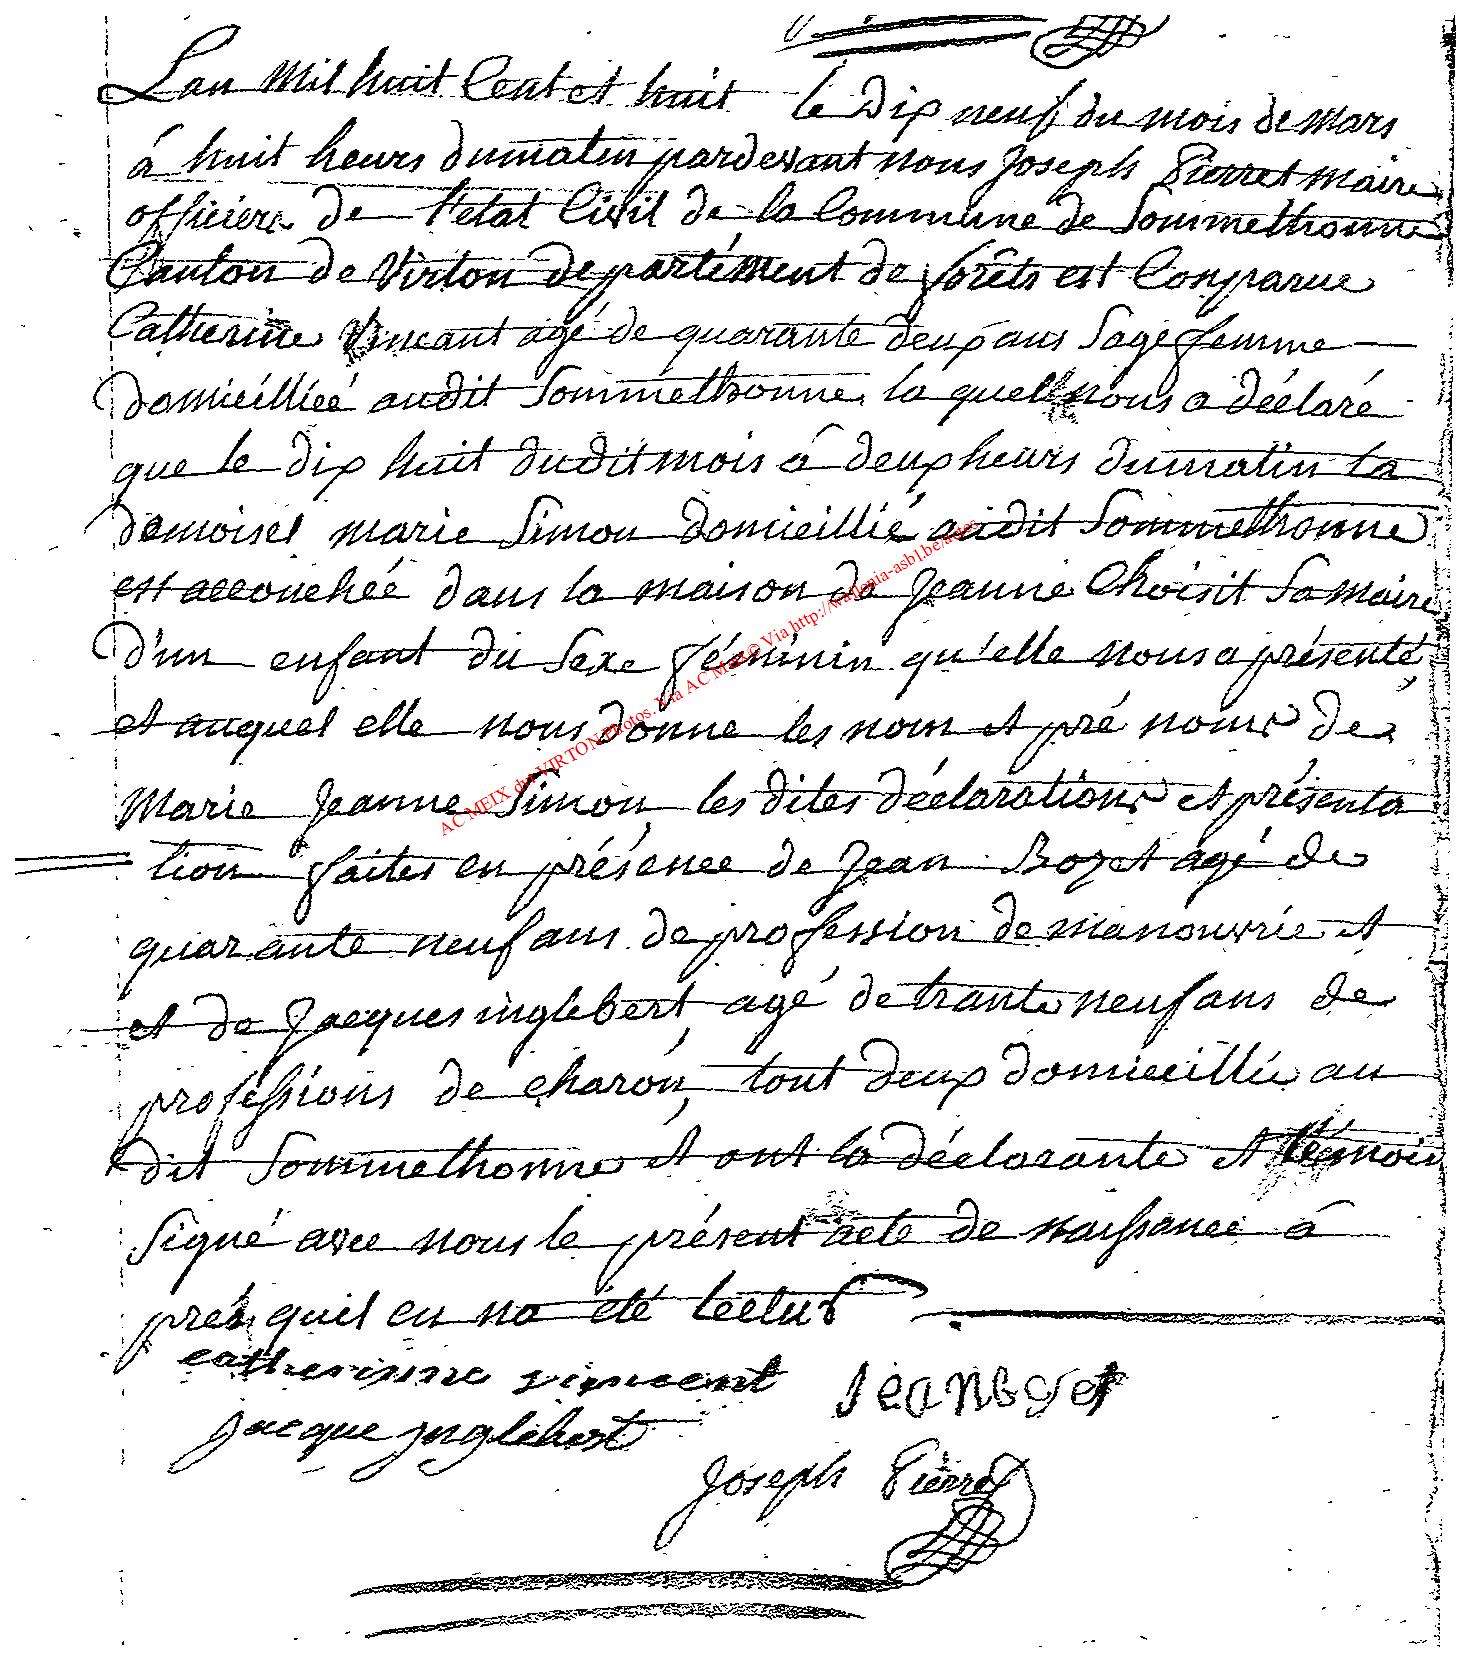 Lan mil huit Cent et huit le dix neuf du mois de mars
á huit heurs dumatin pardevant nous Joseph Pierret maire
officiere de l'etat Civil de la Commune de Sommethonne
Canton de Virton departément de forêts est Comparue
Catherine Vincant agé de quarante deux ans Sage femme
domiciélliéé audit Sommethonne la quell nous a déclaré
que le dix huit dudit mois á deux heurs dumatin la
demoisel marie Simon domicillié audit Sommethonne
est accouchéé dans la maison de Jeanne Choisit Sa maire
d'un enfant du Sexe féminin qu'elle nous a présenté,
et auquel elle nous donne les nom et pré noms de
Marie Jeanne Simon, les dites déclarations et présenta
tion faites en présence de Jean Bozet agé de
quarante neuf ans de profession de manouvrie et
et de Jacques inglebert, agé de trante neuf ans de
proféssions de charon, tout deux domicillié au
dit Sommethonne et ont la déclarante et témoin
Signé avec nous le présent acte de naissance á
prés quil en na été lectur
catherinne vincent Jean boset
Jacque jnglebert
Joseph Pierret
AC MEIX dvt VIRTON Photos. Via AC Matc© Via http://wallonia-asbl.be/actes